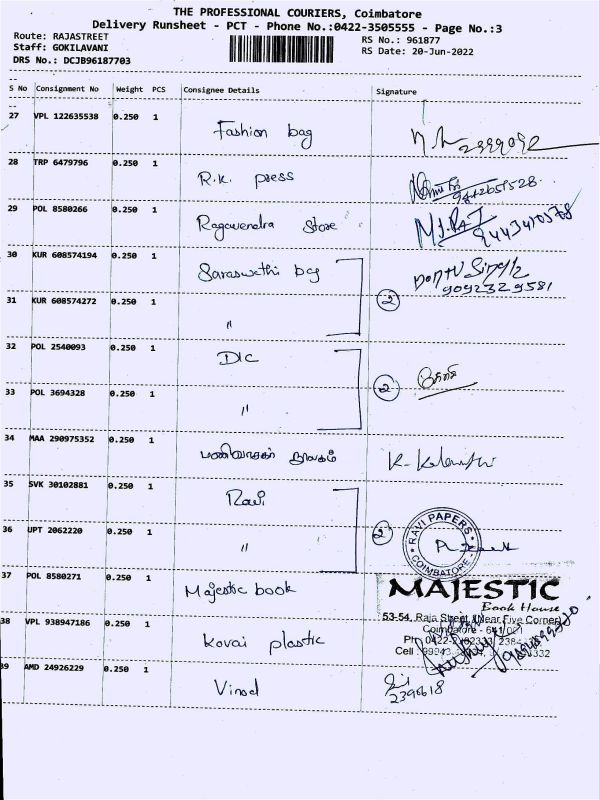 THE PROFESSIONAL COURIERS, Coimbatore
Delivery Runsheet - PCT - Phone No.:0422-3505555 - Page No.:3
Route: RAJASTREET
Staff: GOKILAVANI
DRS No.: DCJB96187703
RS No.: 961877
RS Date: 20-Jun-2022
S No Consignment No Weight PCS Consignee Details Signature
27 VPL 122635538 0.250 1 Fashion bag
28 TRP 6479796 0.250 1 R.K. press
29 POL 8580266 0.250 1 Ragavendra Store
30 KUR 608574194 0.250 1 Saraswathi bag
9092329581
31 KUR 608574272 0.250 1 " 2
32 POL 2540093 0.250 1 DLC
33 POL 3694328 0.250 1 " 2
34 MAA 290975352 0.250 1
35 SVK 30102881 0.250 1 Ravi
36 UPT 2062220 0.250 1 " 2
RAVI PAPERS
COIMBATORE
37 POL 8580271 0.250 1 Majestic book
MAJESTIC
Book House
53-54, Raja Street, (Near Five Corner)
Coimbatore - 641 001
38 VPL 938947186 0.250 1 Kovai plastic
39 AMD 24926229 0.250 1 Vinod
2396618